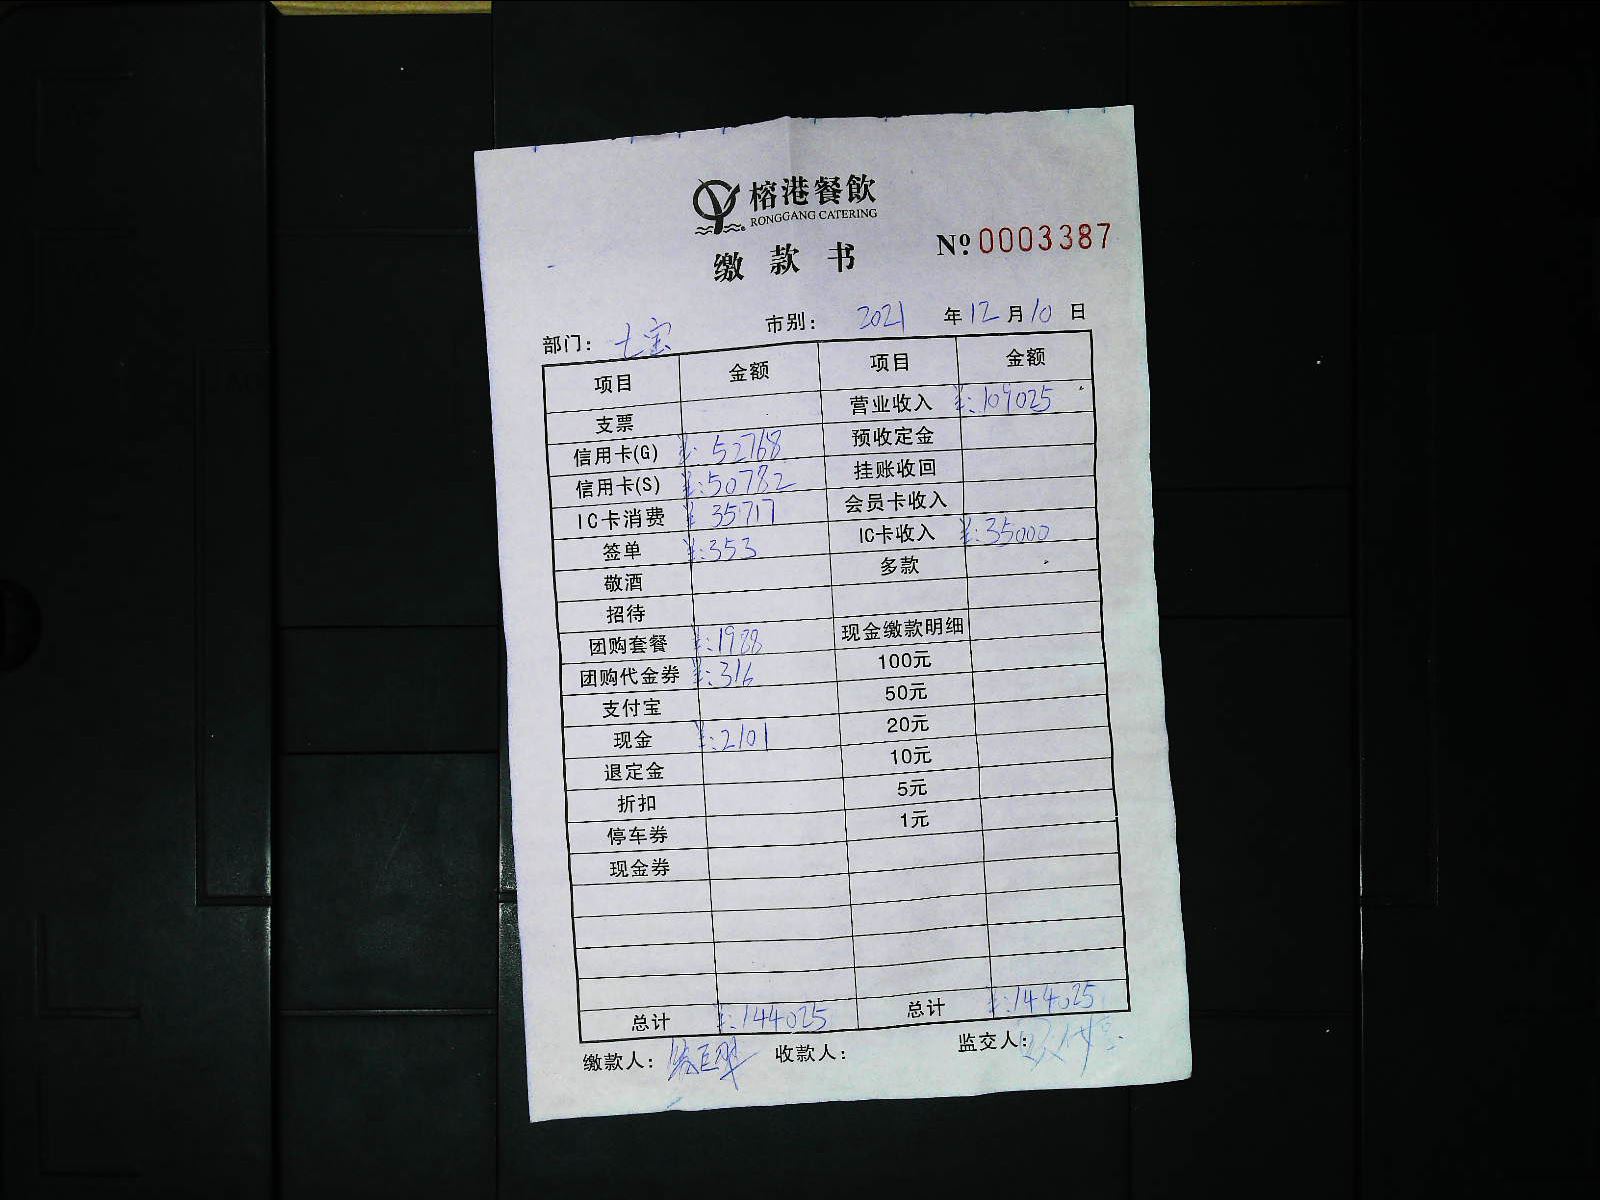 榕港餐飲
RONGGANG CATERING
缴款书
Nº 0003387
部门：七宝 市别： 2021 年 12 月 10 日
项目 金额 项目 金额
支票 营业收入 ¥:109025
信用卡(G) ¥:52768 预收定金
信用卡(S) ¥:50782 挂账收回
IC卡消费 ¥ 35717 会员卡收入
签单 ¥:353 IC卡收入 ¥:35000
敬酒 多款
招待
团购套餐 ¥:1988 现金缴款明细
团购代金券 ¥:316 100元
支付宝 50元
现金 ¥:2101 20元
退定金 10元
折扣 5元
停车券 1元
现金券
总计 ¥:144025 总计 ¥:144025
缴款人： 收款人： 监交人：